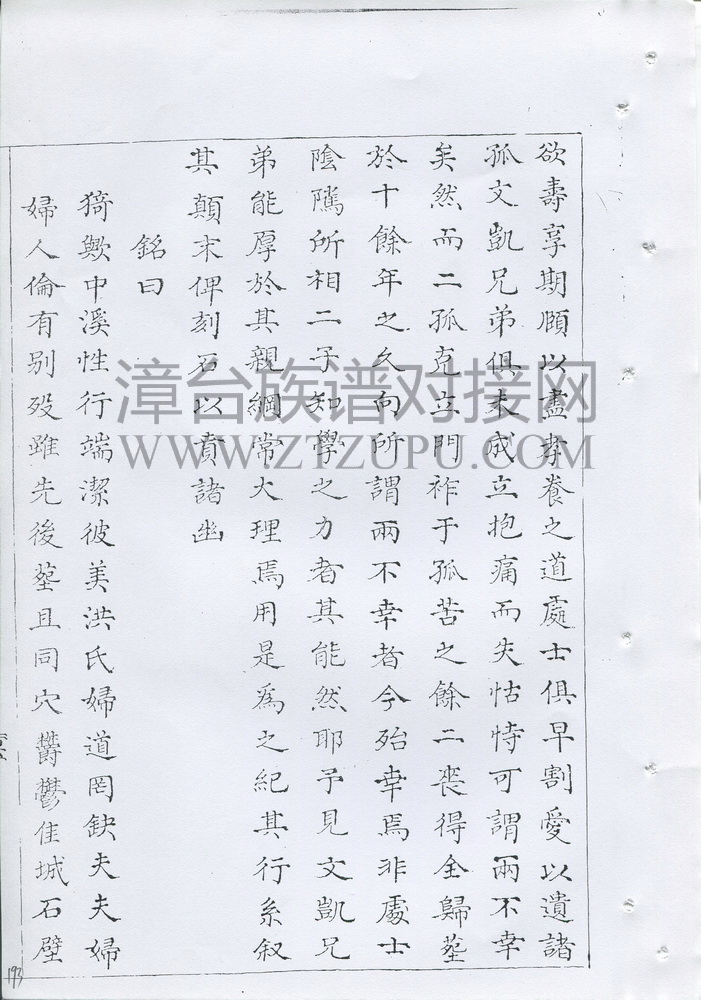 欲壽享期頤以盡孝養之道處士俱早割愛以遺諸
孤文凱兄弟俱未成立抱痛而失怙恃可謂兩不幸
矣然而二孤克立門祚于孤苦之餘二喪得全歸塟
於十餘年之久向所謂兩不幸者今殆幸焉非處士
陰隲所相二子知學之力者其能然耶予見文凱兄
弟能厚於其親綱常大理焉用是為之紀其行系叙
其顛末俾刻石以賁諸幽
銘曰
猗歟中溪性行端潔彼美洪氏婦道罔缺夫夫婦
婦人倫有别殁雖先後塟且同穴欝鬱佳城石壁
漳台族谱对接网
WWW.ZTZUPU.COM
193